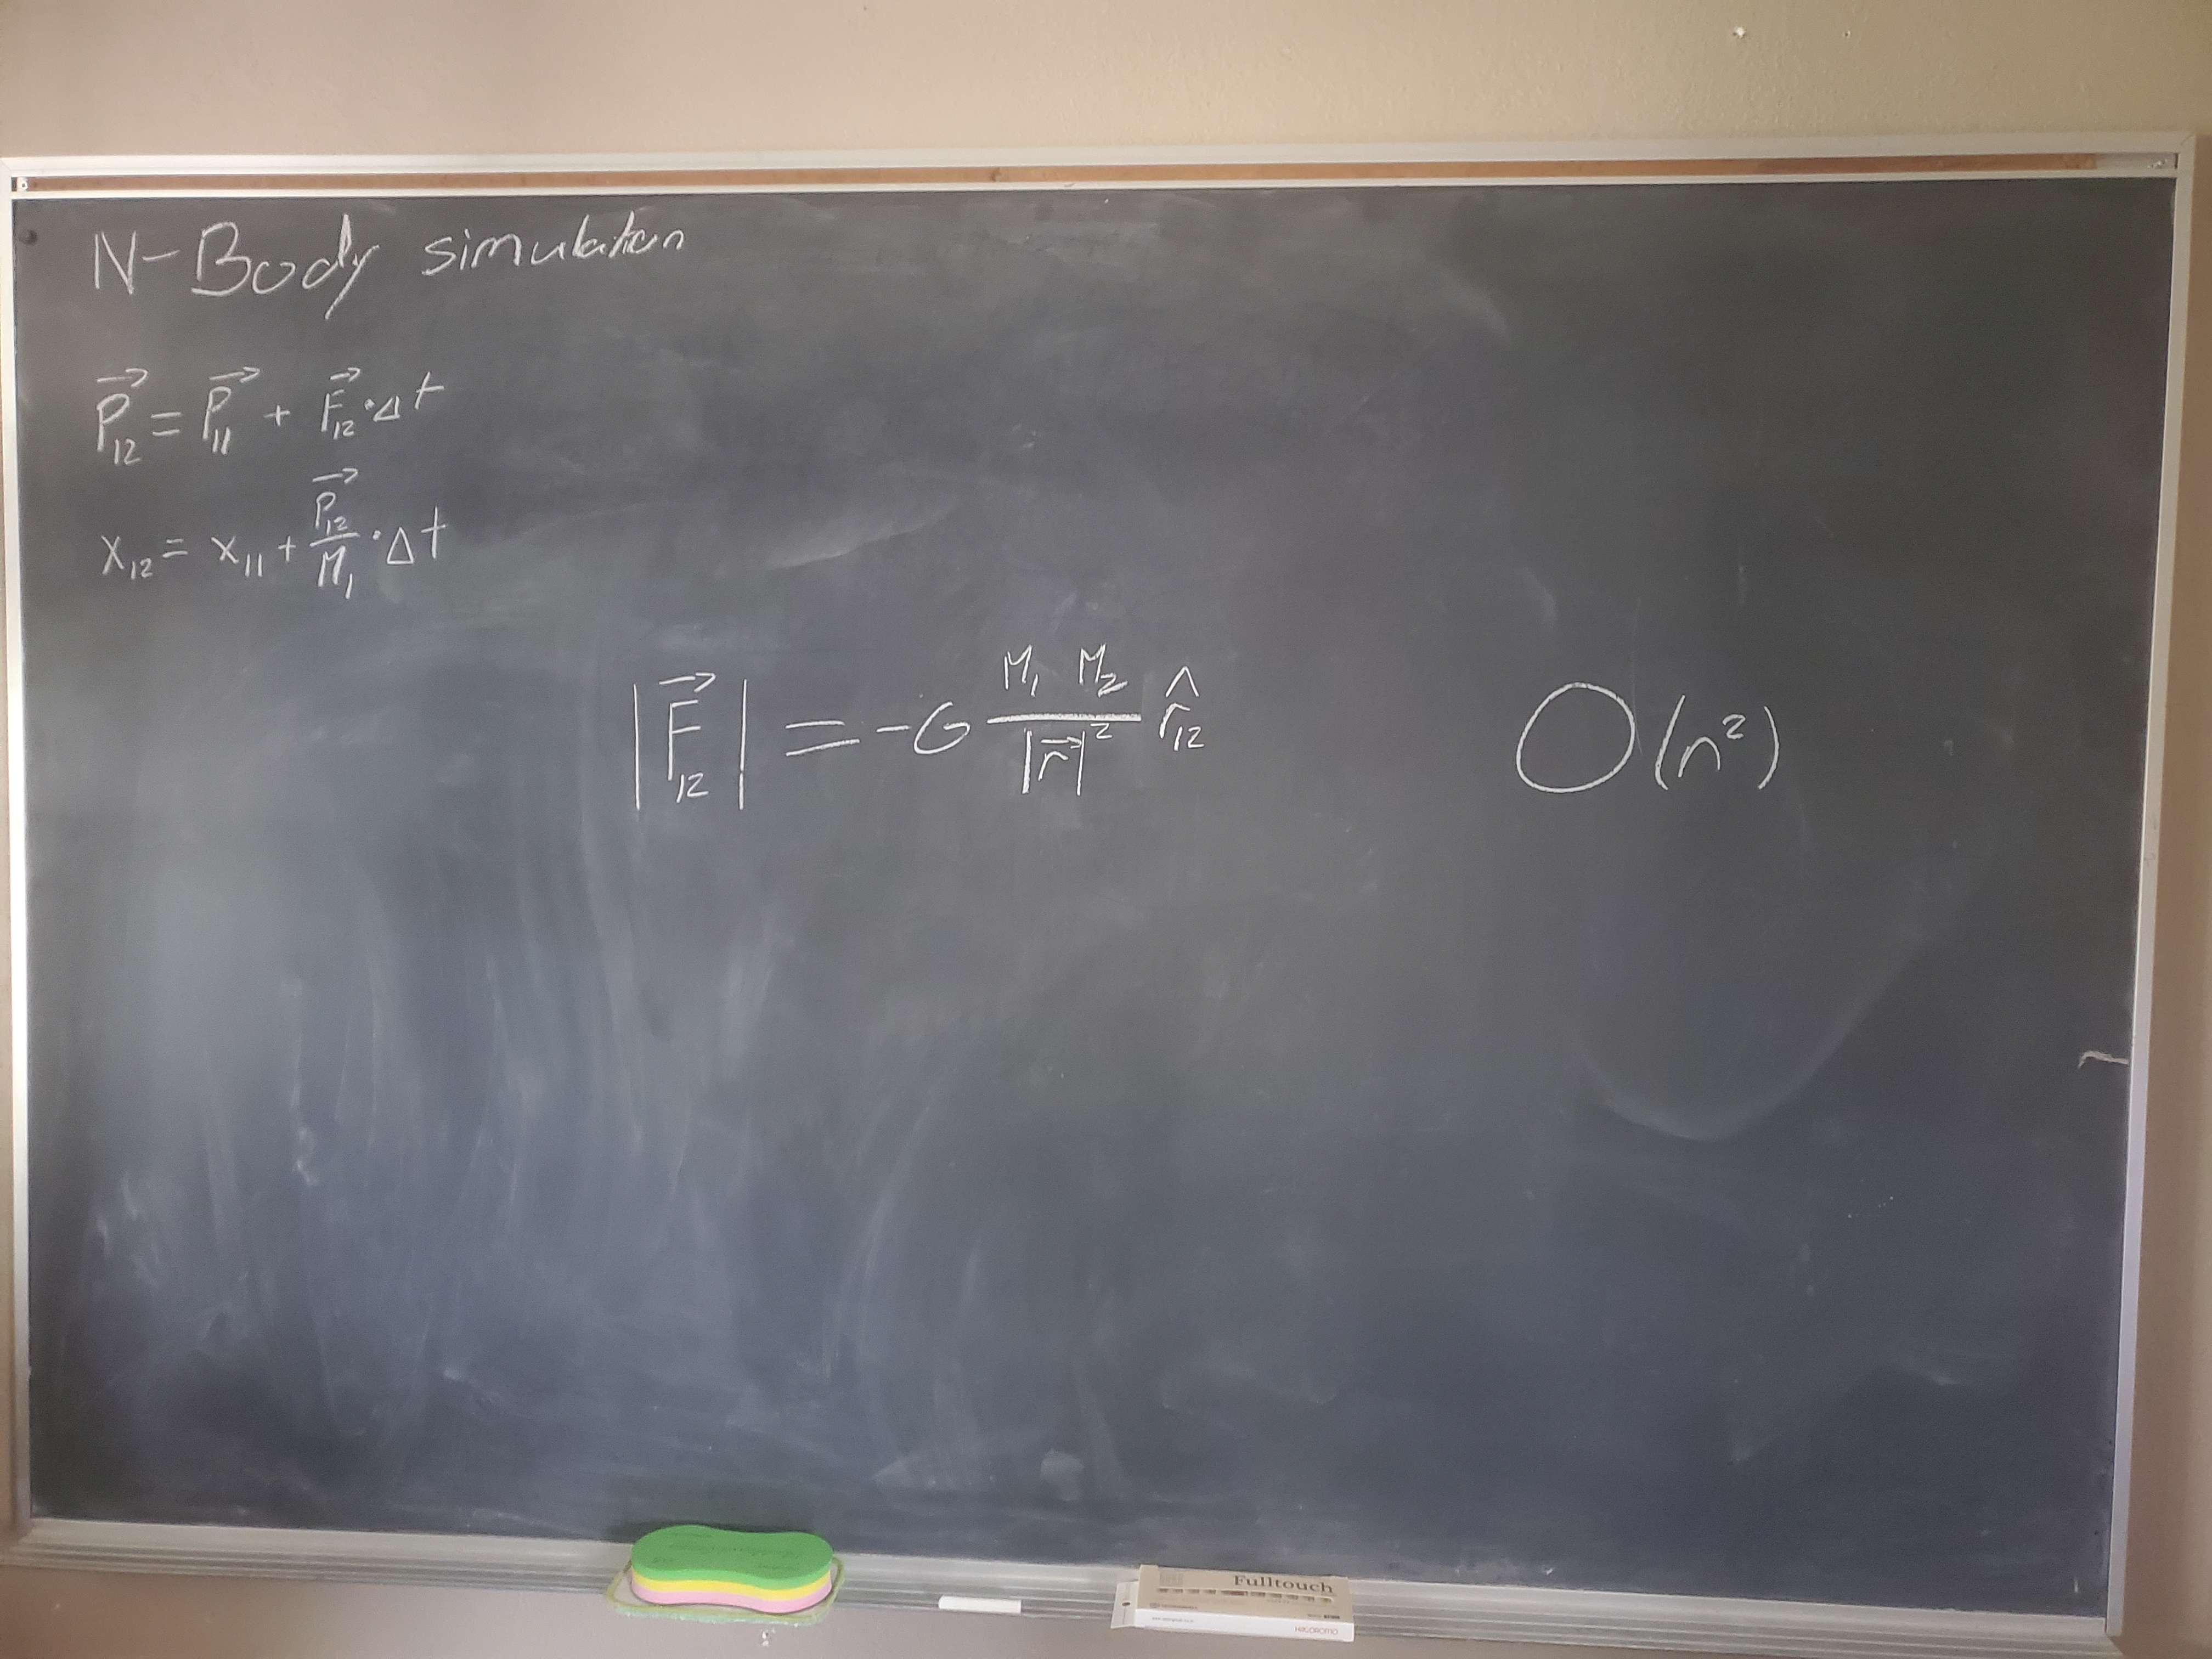 N-Body simulation
P⃗₁₂ = P⃗₁₁ + F⃗₁₂ · Δt
x₁₂ = x₁₁ + P⃗₁₂/M₁ · Δt
|F⃗₁₂| = -G M₁ M₂/|r⃗|² r̂₁₂
O(n²)
Fulltouch
HAGOROMO